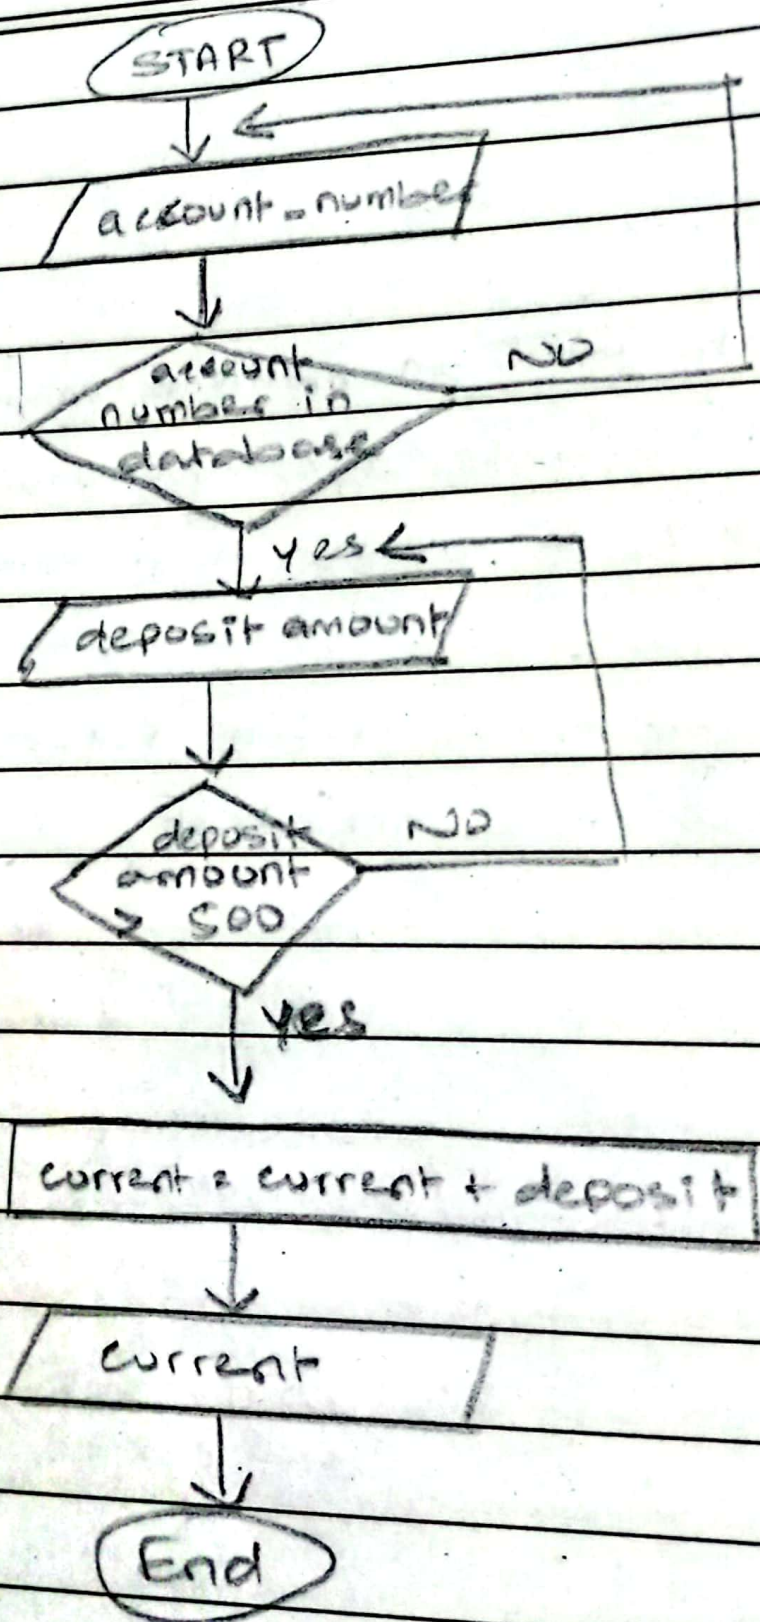 START
account_number
account
number in
database
NO
yes
deposit amount
deposit
amount
> 500
NO
yes
current = current + deposit
current
End